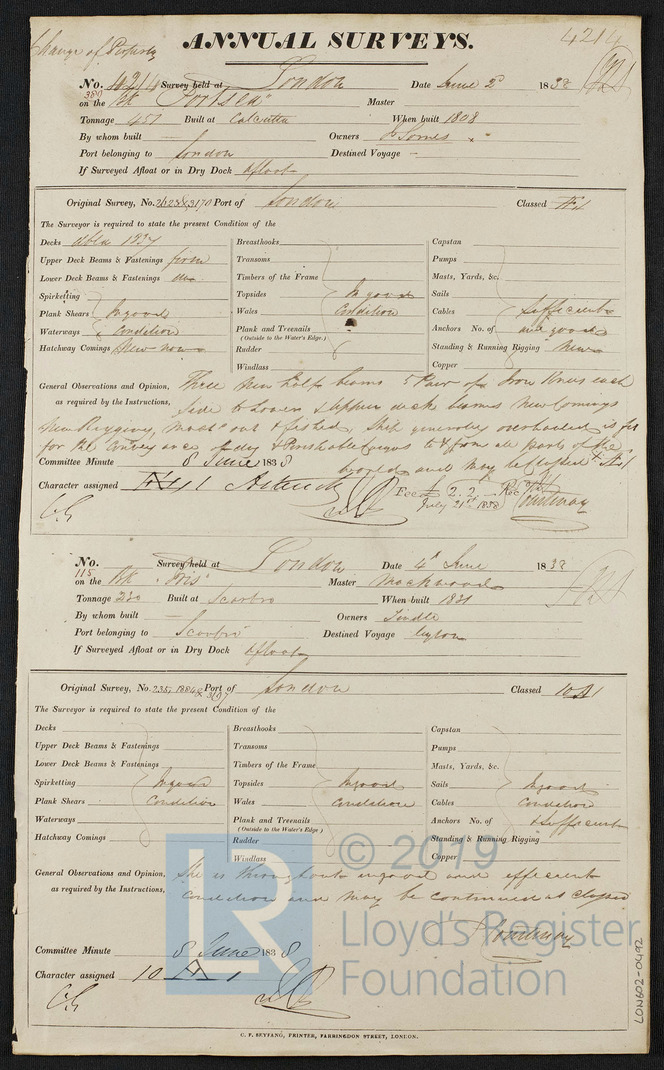 Change of Property
ANNUAL SURVEYS.
4214
No. Survey held at London Date June 2d 1838
380
on the Bk "Portsea" Master
Tonnage 451 Built at Calcutta When built 1808
By whom built Owners J Somes
Port belonging to London Destined Voyage —
If Surveyed Afloat or in Dry Dock afloat
Original Survey, No. Port of London Classed Æ1
The Surveyor is required to state the present Condition of the
Decks 1837 Breasthooks Capstan
Upper Deck Beams & Fastenings Transoms Pumps
Lower Deck Beams & Fastenings Timbers of the Frame Masts, Yards, &c.
Spirketting Topsides In good Sails
Plank Shears In good Wales Condition Cables Sufficient
Waterways Condition Plank and Treenails Anchors No. of and good
(Outside to the Water's Edge.)
Hatchway Comings New now Rudder Standing & Running Rigging New
Windlass Copper
General Observations and Opinion, Three New half beams 5 Pair of Iron Knees each
as required by the Instructions, side to Lower & Upper deck beams New Comings
New Rigging, masts out & Ship generally overhauled is fit
for the conveyance of dry & Perishable Cargoes to & from all parts of the
world and may be Classed Æ1
Committee Minute 8 June 1838
Character assigned Æ1
Fee £ 2.2 Rec
July 21st 1838 Courtenay
No. Survey held at London Date 4th June 1838
115
on the Bk "Iris" Master Mackwood
Tonnage Built at Scarbro When built 1831
By whom built — Owners Tindle
Port belonging to Scarbro Destined Voyage Ceylon
If Surveyed Afloat or in Dry Dock Afloat
Original Survey, No. Port of London Classed 10A1
The Surveyor is required to state the present Condition of the
Decks Breasthooks Capstan
Upper Deck Beams & Fastenings Transoms Pumps
Lower Deck Beams & Fastenings Timbers of the Frame Masts, Yards, &c.
Spirketting In good Topsides In good Sails In good
Plank Shears Condition Wales Condition Cables Condition
Waterways Plank and Treenails Anchors No. of & Sufficient
(Outside to the Water's Edge)
Hatchway Comings Rudder Standing & Running Rigging
Windlass Copper
© 2019
General Observations and Opinion, She is throughout in good and efficient
as required by the Instructions, Condition and may be continued as Classed
LR
Lloyd's Register
Foundation
Courtenay
Committee Minute 8 June 1838
Character assigned 10 A 1
C. F. SEYFANG, PRINTER, FARRINGDON STREET, LONDON.
LON602-0492